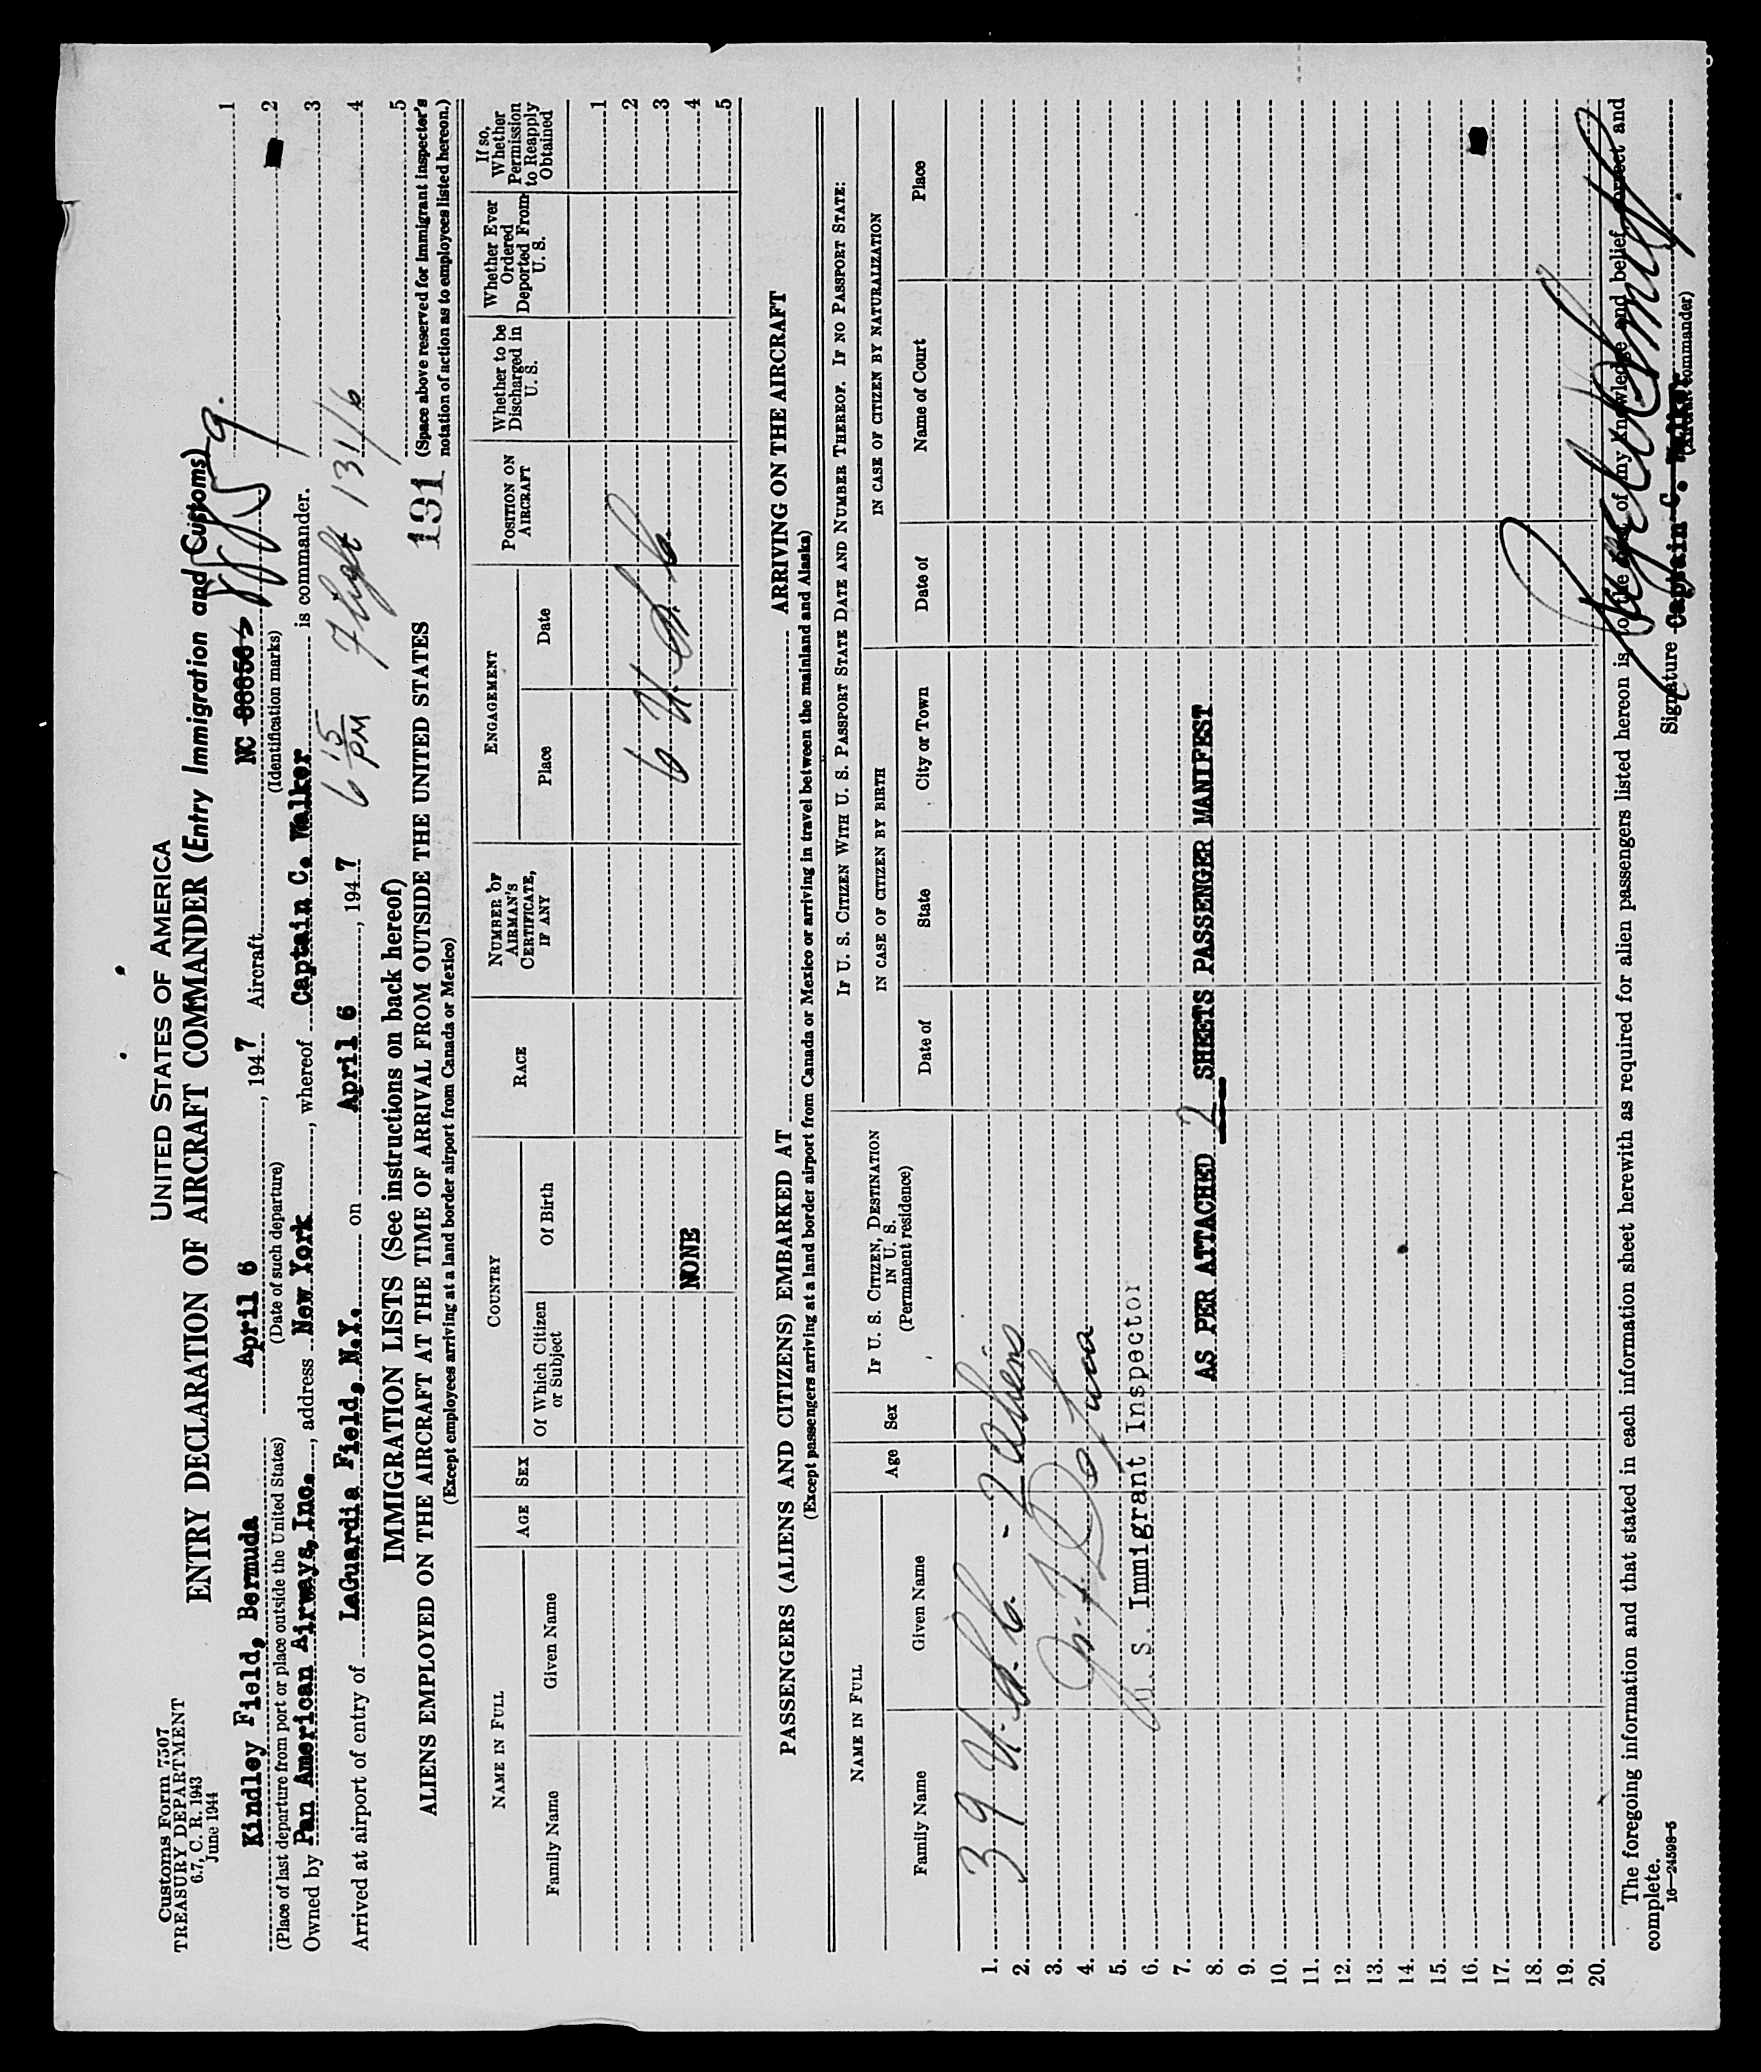 Customs Form 7507
TREASURY DEPARTMENT
6.7, C. R. 1943
June 1944
UNITED STATES OF AMERICA
ENTRY DECLARATION OF AIRCRAFT COMMANDER (Entry Immigration and Customs)
Kindley Field, Bermuda April 6, 1947 Aircraft NC 88859
(Place of last departure from port or place outside the United States) (Date of such departure) (Identification marks)
Owned by Pan American Airways, Inc., address New York, whereof Captain C. Walker is commander.
Arrived at airport of entry of LaGuardia Field, N.Y. on April 6, 1947 6 15 PM Flight 131/6
1
2
3
4
5
(Space above reserved for immigrant inspector's notation of action as to employees listed hereon.)
IMMIGRATION LISTS (See instructions on back hereof)
191
ALIENS EMPLOYED ON THE AIRCRAFT AT THE TIME OF ARRIVAL FROM OUTSIDE THE UNITED STATES
(Except employees arriving at a land border airport from Canada or Mexico)
NAME IN FULL
Family Name
Given Name
AGE
SEX
COUNTRY
Of Which Citizen or Subject
Of Birth
RACE
NUMBER OF AIRMAN'S CERTIFICATE, IF ANY
ENGAGEMENT
Place
Date
POSITION ON AIRCRAFT
Whether to be Discharged in U. S.
Whether Ever Ordered Deported From U. S.
If so, Whether Permission to Reapply Obtained
1
2
6 U.S.C.
3
NONE
4
5
PASSENGERS (ALIENS AND CITIZENS) EMBARKED AT ARRIVING ON THE AIRCRAFT
(Except passengers arriving at a land border airport from Canada or Mexico or arriving in travel between the mainland and Alaska)
NAME IN FULL
Family Name
Given Name
Age
Sex
IF U. S. CITIZEN, DESTINATION IN U. S.
(Permanent residence)
IF U. S. CITIZEN WITH U. S. PASSPORT STATE DATE AND NUMBER THEREOF. IF NO PASSPORT STATE:
IN CASE OF CITIZEN BY BIRTH
Date of
State
City or Town
IN CASE OF CITIZEN BY NATURALIZATION
Date of
Name of Court
Place
1.
2. 39 U.S.C. - 7 Aliens
3.
4.
5.
6. U. S. Immigrant Inspector
7.
8. AS PER ATTACHED 2 SHEETS PASSENGER MANIFEST
9.
10.
11.
12.
13.
14.
15.
16.
17.
18.
19.
20.
The foregoing information and that stated in each information sheet herewith as required for alien passengers listed hereon is to the best of my knowledge and belief correct and complete.
16—24598-5
Signature Captain C. Walker
(Aircraft commander)